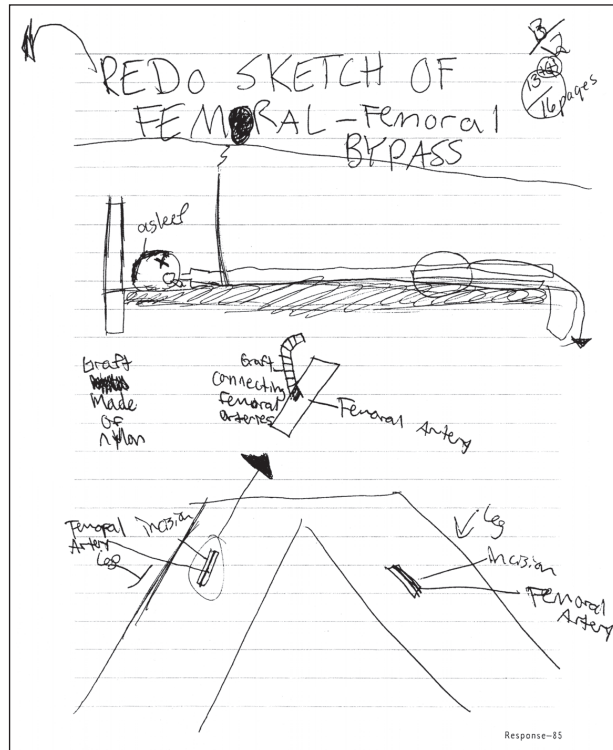 REDO SKETCH OF
FEMORAL-Femoral
BYPASS
13
16 pages
asleep
Graft
Made
OF
nylon
Graft
connecting
Femoral
arteries
Femoral Artery
Femoral
Artery
incision
Leg
Leg
Incision
Femoral
Artery
Response–85